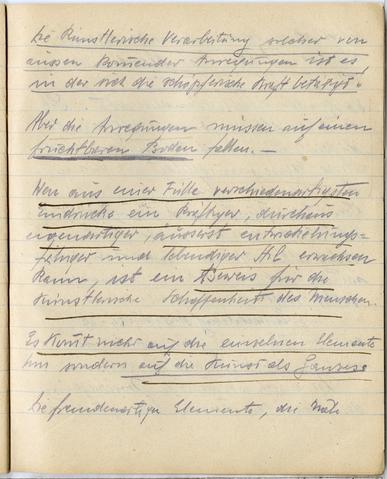 die künstlerische Verarbeitung solcher von
aussen kommender Anregungen ist es,
in der sich die schöpferische Kraft betätigt.
Aber die Anregungen müssen auf einen
fruchtbaren Boden fallen. —
Wenn aus einer Fülle verschiedenartigsten
Eindrücke ein kräftiger, durchaus
eigenartiger, äusserst entwickelungs=
fähiger und lebendiger Stil erwachsen
kann, ist ein Beweis für die
künstlerische Schaffenheit des Menschen.
Es komt nicht auf die einzelnen Elemente
an sondern auf die Kunst als Ganzes.
Die fremdenartige Elemente, die